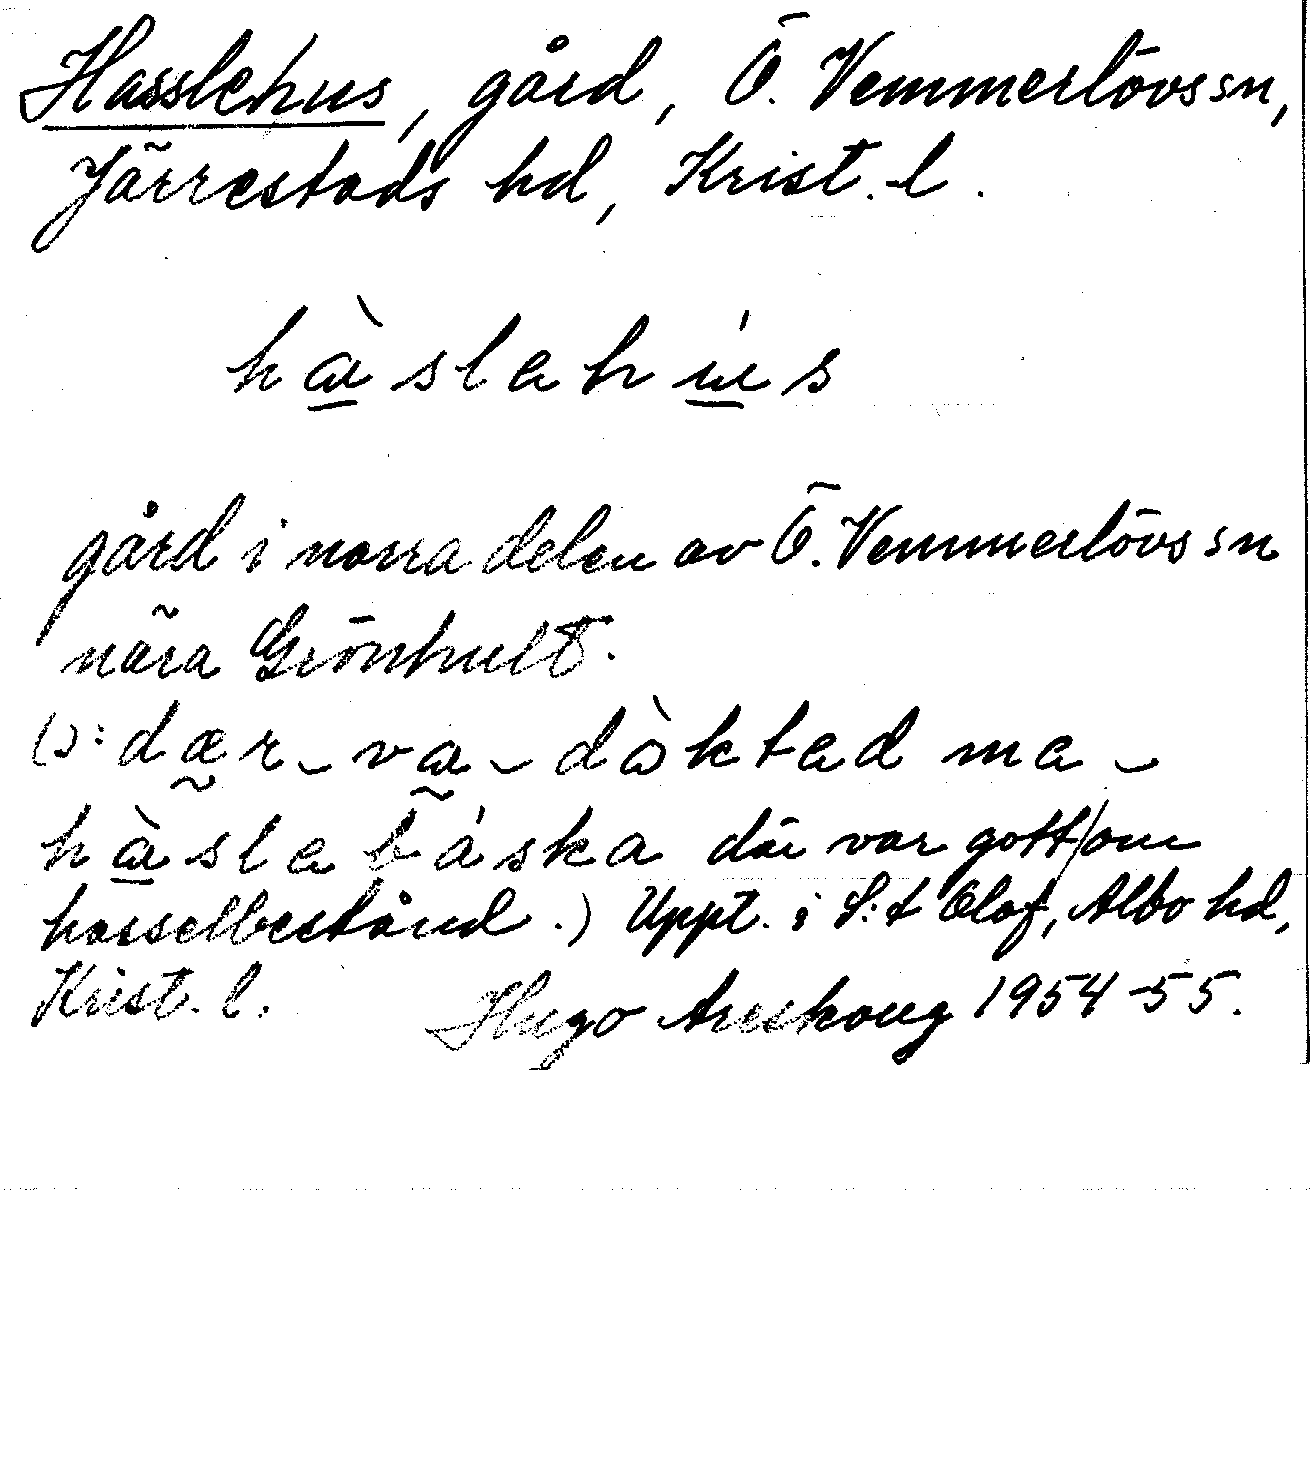 Hasslehus, gård, Ö. Vemmerlövs sn,
Järrestads hd, Krist. l.
hàslahús
gård i norra delen av Ö. Vemmerlövs sn
nära Grönhult.
(ɔ: dær va dàktad ma
hàslabáska där var gott/om
hasselbestånd.) Uppt. i S:t Olof, Albo hd,
Krist. l. Hugo Areskoug 1954-55.